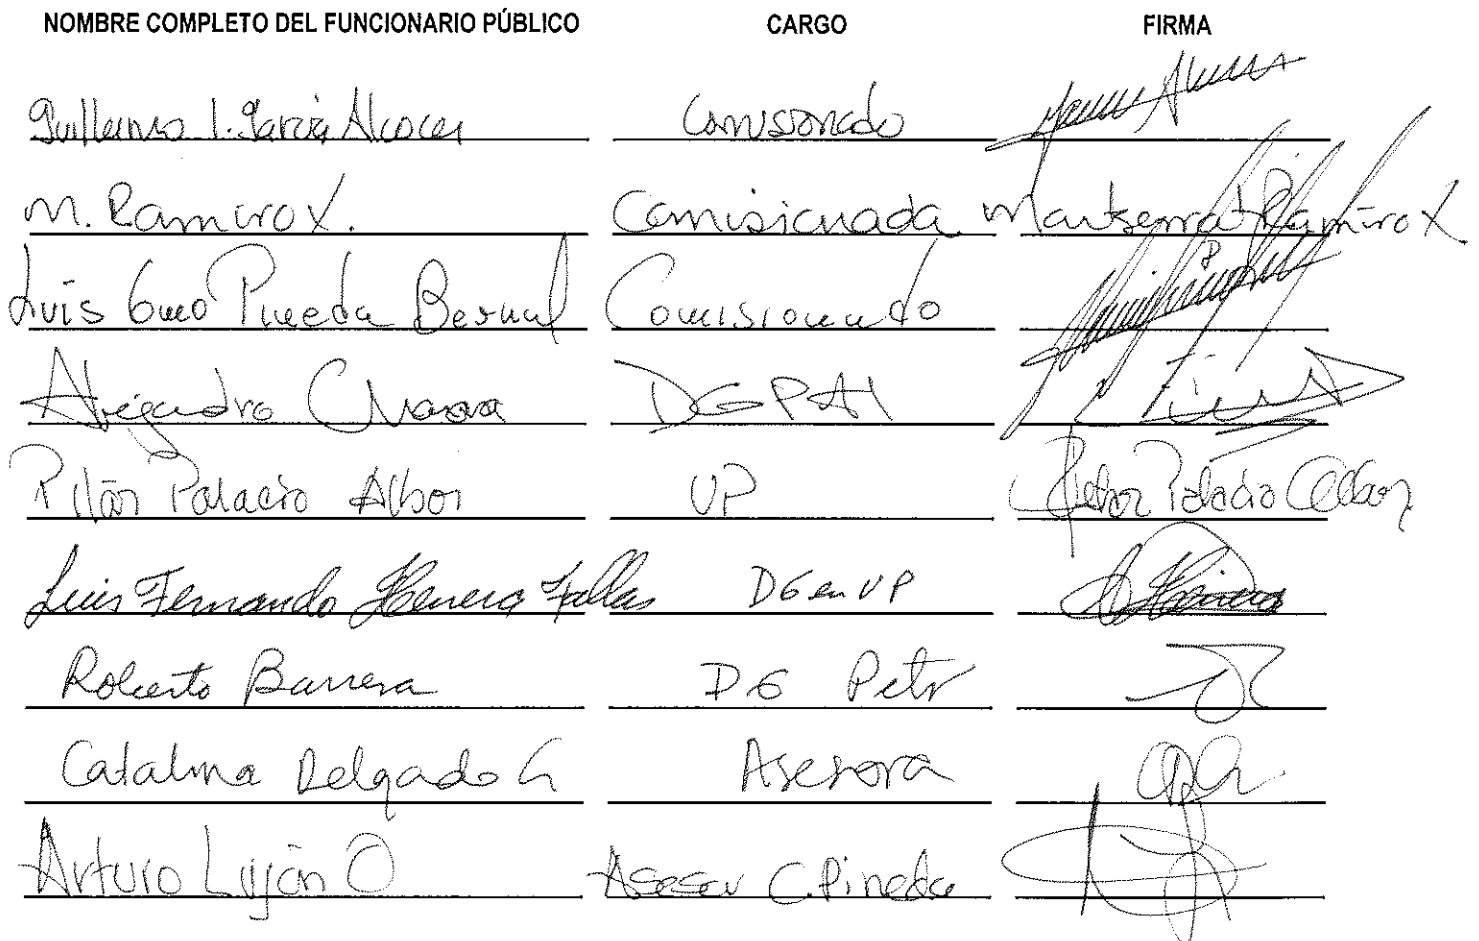 NOMBRE COMPLETO DEL FUNCIONARIO PÚBLICO CARGO FIRMA
Guillermo I. García Alcocer Comisionado
M. Ramiro X. Comisionada Montserrat Ramiro X
Luis Gmo Pineda Bernal Comisionado
Alejandro DGPAI
Pilar Palacio Albor UP Pilar Palacio Albor
Luis Fernando Herrera Fallas DG en UP
Roberto Barrera DG Petr
Catalina Delgado G Asesora
Arturo Luján O Asesor C. Pineda